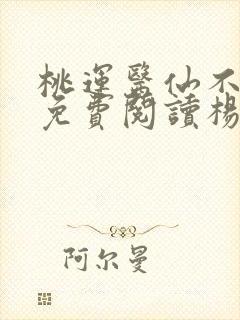 桃運醫仙不
免費閱讀楊
阿尔曼